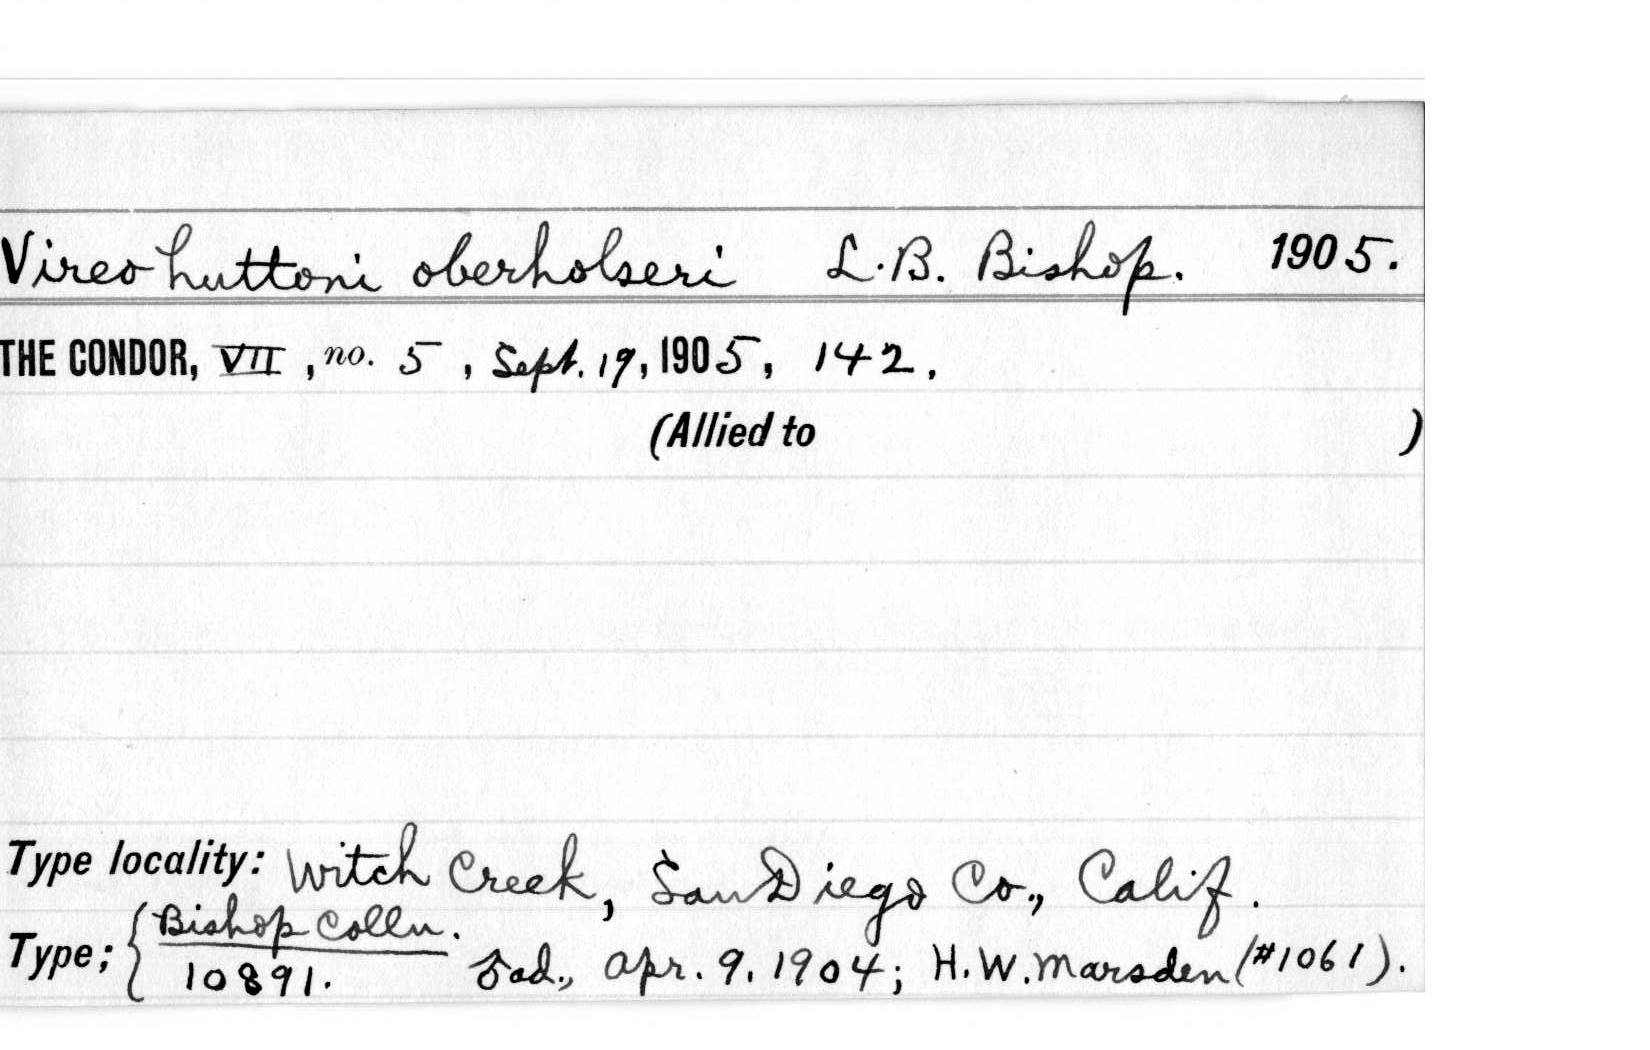 Vireo huttoni oberholseri L.B. Bishop. 1905.
THE CONDOR, VII, no. 5, Sept. 19, 1905, 142.
(Allied to )
Type locality: Witch Creek, San Diego Co., Calif.
Type; { Bishop Colln.
10891. ♂ ad., Apr. 9, 1904; H.W. Marsden (#1061).